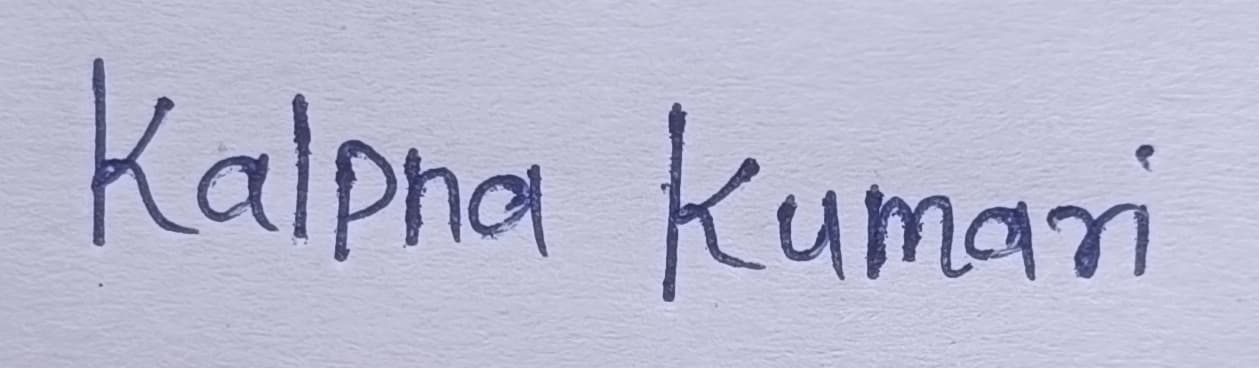 Kalpna Kumari